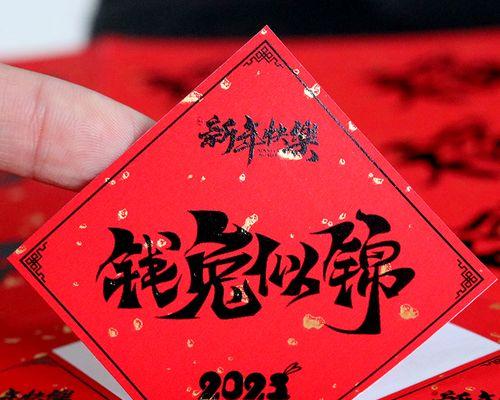 新年快樂
钱兔似锦
2023